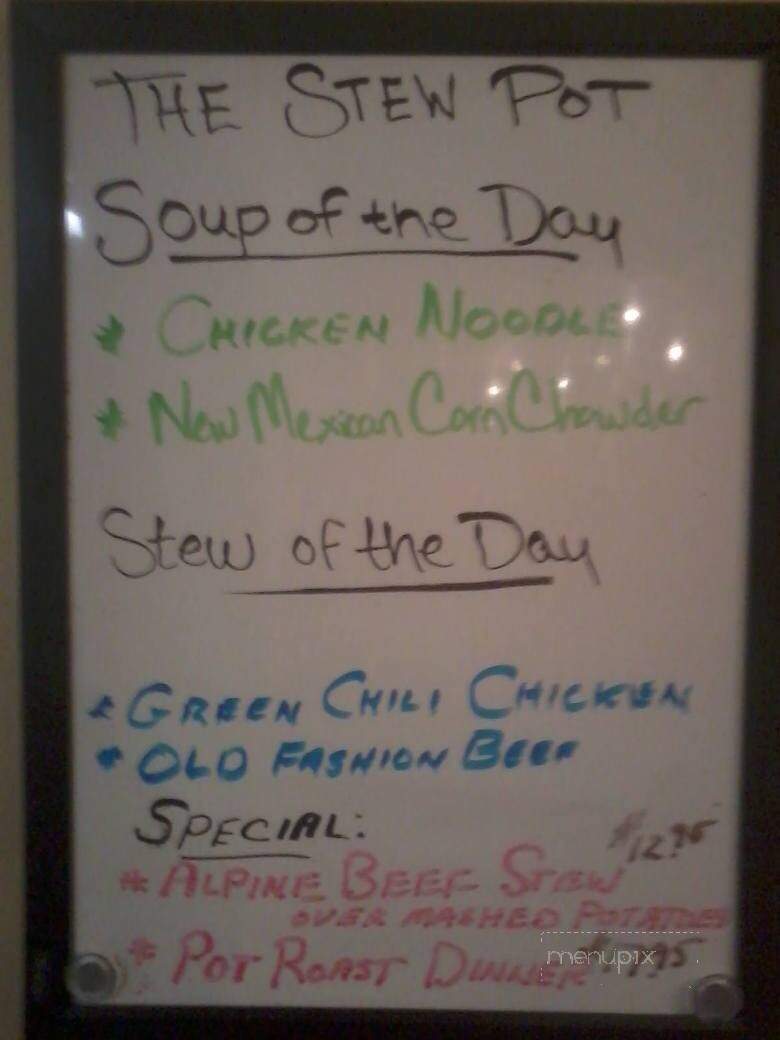 THE STEW POT
Soup of the Day
* CHICKEN NOODLE
* New Mexican Corn Chowder
Stew of the Day
* GREEN CHILI CHICKEN
* OLD FASHION BEEF
SPECIAL:
$12.95
* ALPINE BEEF STEW
OVER MASHED POTATOES
* POT ROAST DINNER
menupix